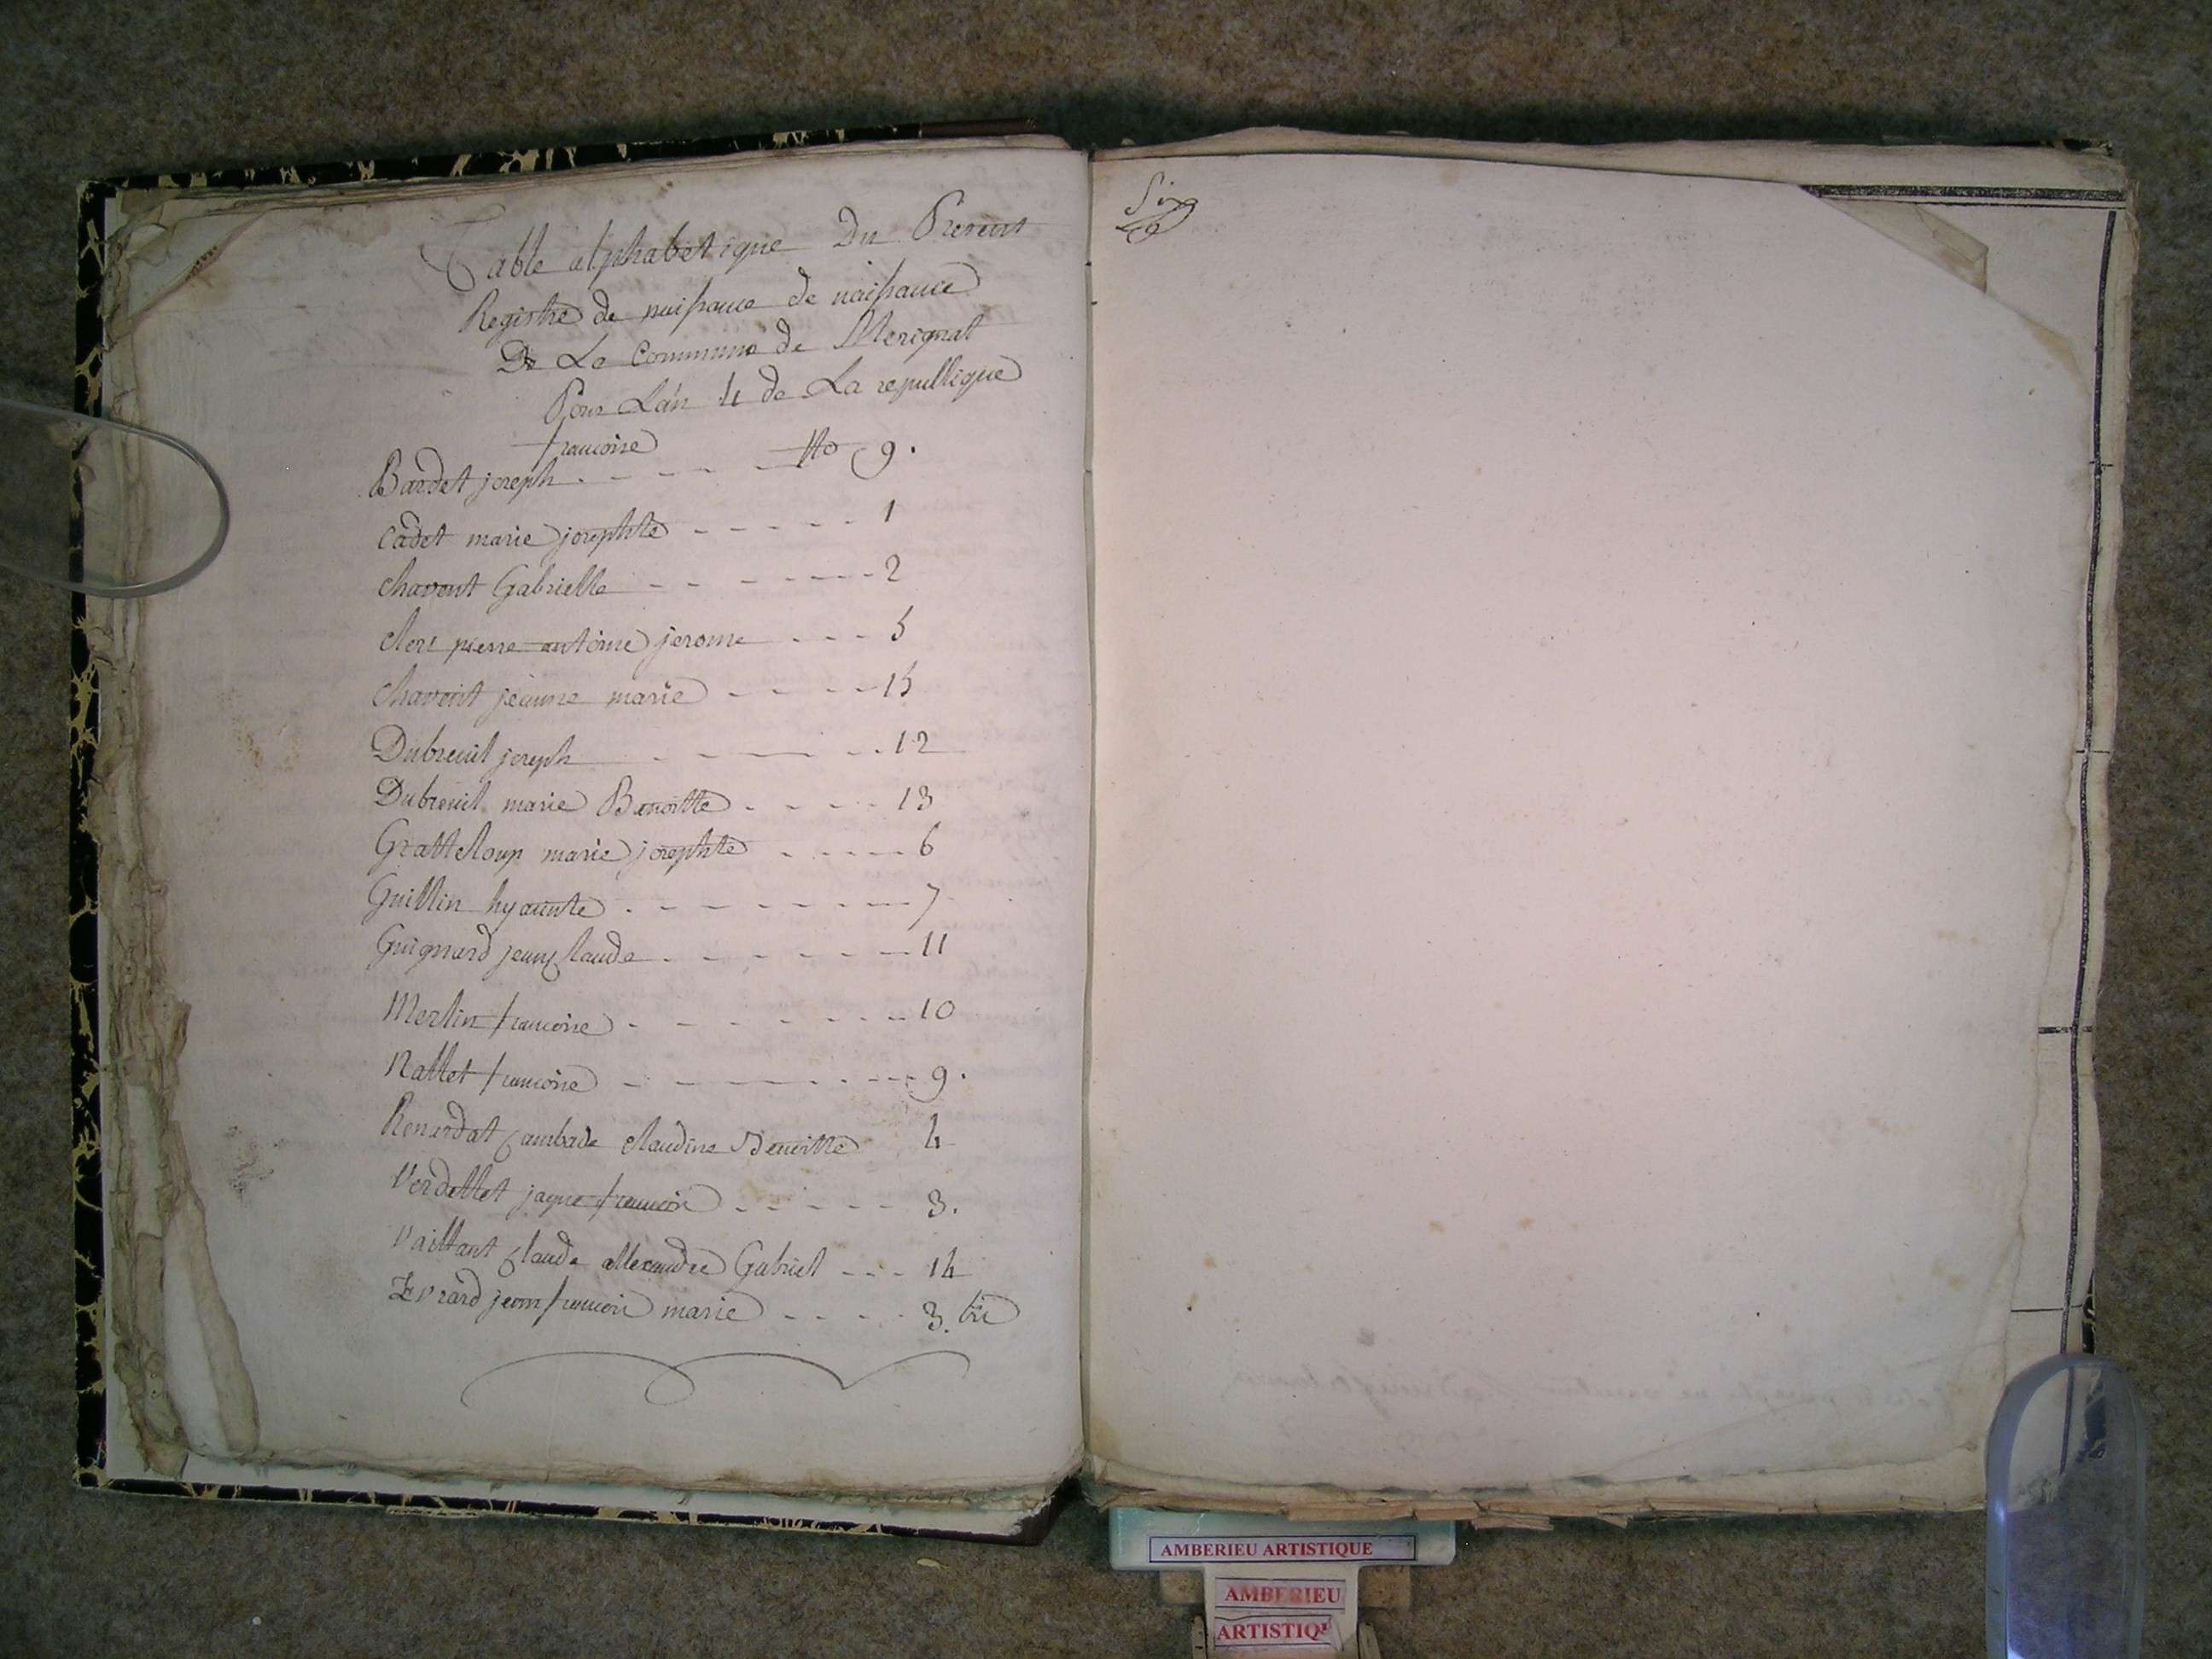 Table alphabetique Du Present
Registre de naissance de naissance
De La Commune de Merignat
Pour L'an 4 de La republique
francoise
Bardet joseph - - - - No 9.
cadet marie josephte - - - - - 1
chavent Gabrielle - - - - - - 2
clerc pierre antoine jerome - - - 5
chavent jeanne marie - - - - 15
Dubreuil joseph - - - - 12
Dubreuil marie Benoitte - - - - 13
Gratteloup marie josephte - - - - 6
Guillin hyacinte - - - - - - - 7
Guignard jean claude - - - - - - 11
Merlin francoise - - - - - - - 10
Nallet francoise - - - - - - - 9.
Renardat Cambade claudine Benoitte 4
Verdellet jaque francois - - - - - 3.
Vaillant Claude allexandre Gabriel - - - 14
Evrard jean francois marie - - - - 3. bis
Six
AMBERIEU ARTISTIQUE
AMBERIEU
ARTISTIQ